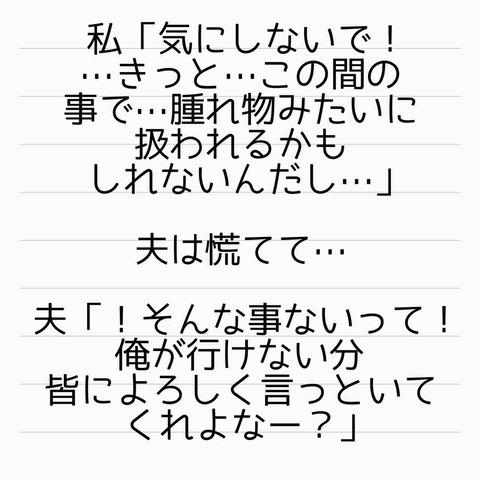 私「気にしないで！
…きっと…この間の
事で…腫れ物みたいに
扱われるかも
しれないんだし…」
夫は慌てて…
夫「！そんな事ないって！
俺が行けない分
皆によろしく言っといて
くれよなー？」